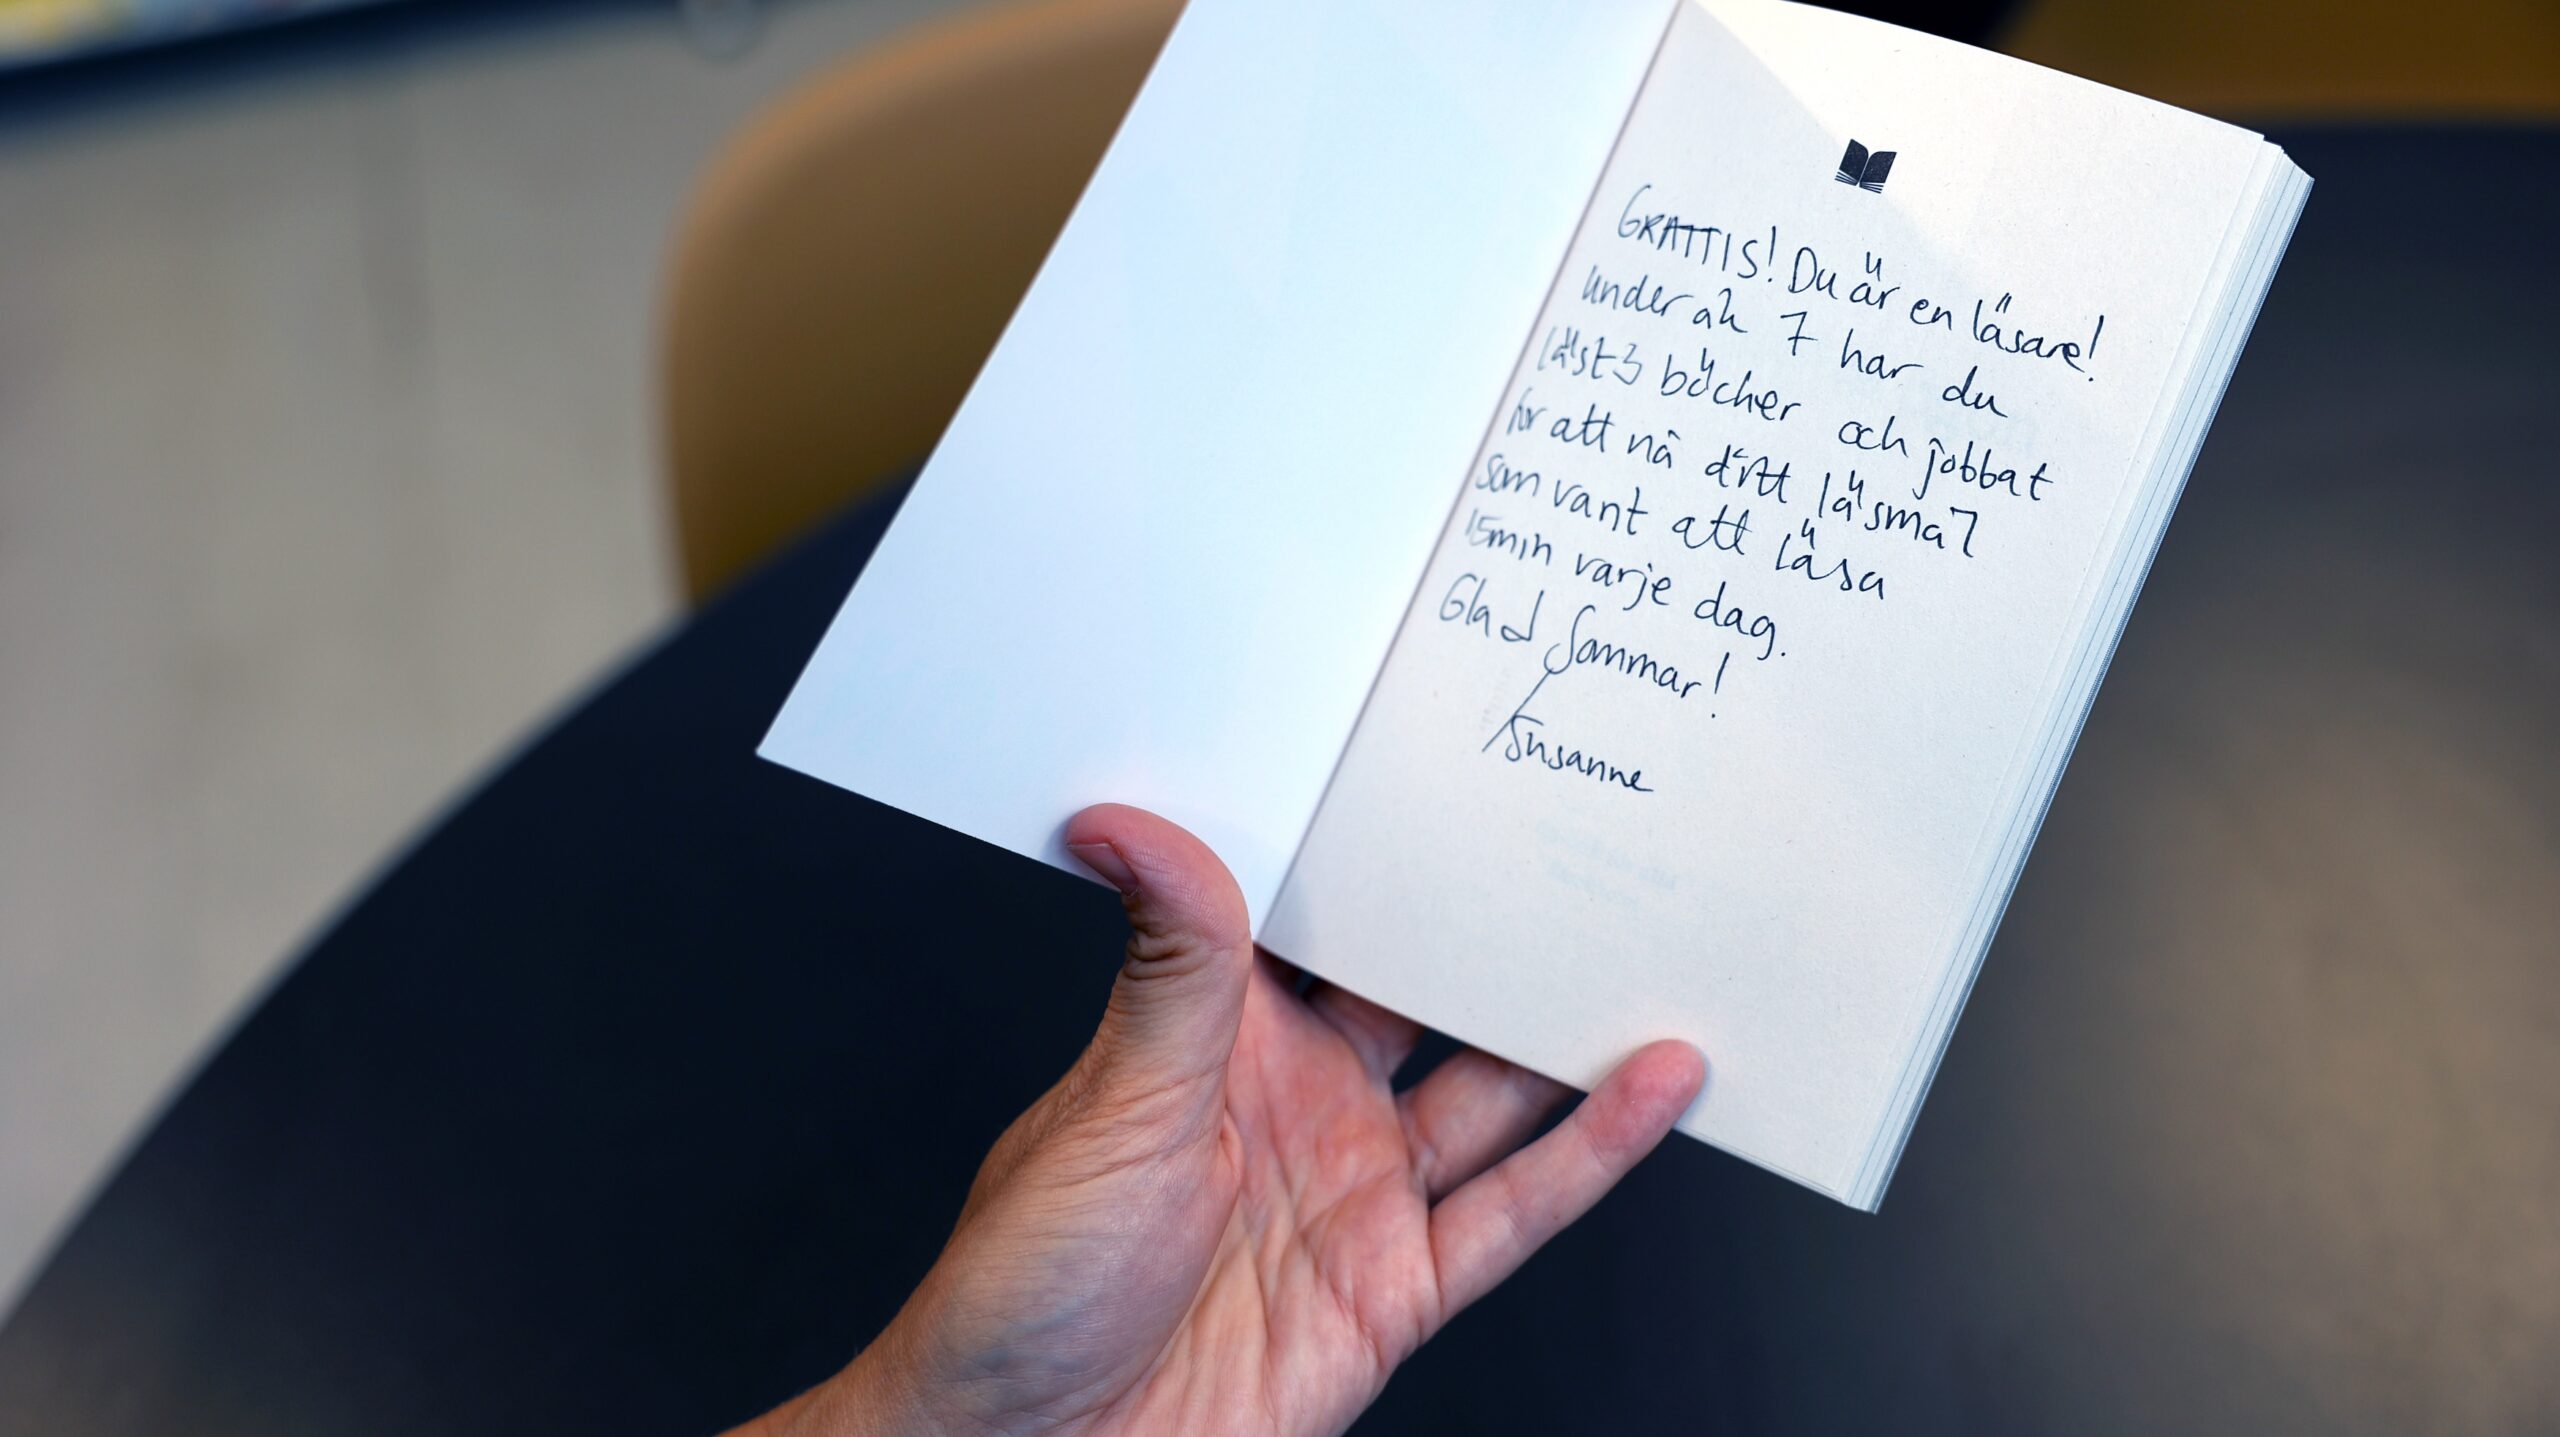 GRATTIS! Du är en läsare!
under åk 7 har du
läst 3 böcker och jobbat
för att nå ditt läsmål
som varit att läsa
15min varje dag.
Glad Sommar!
Susanne